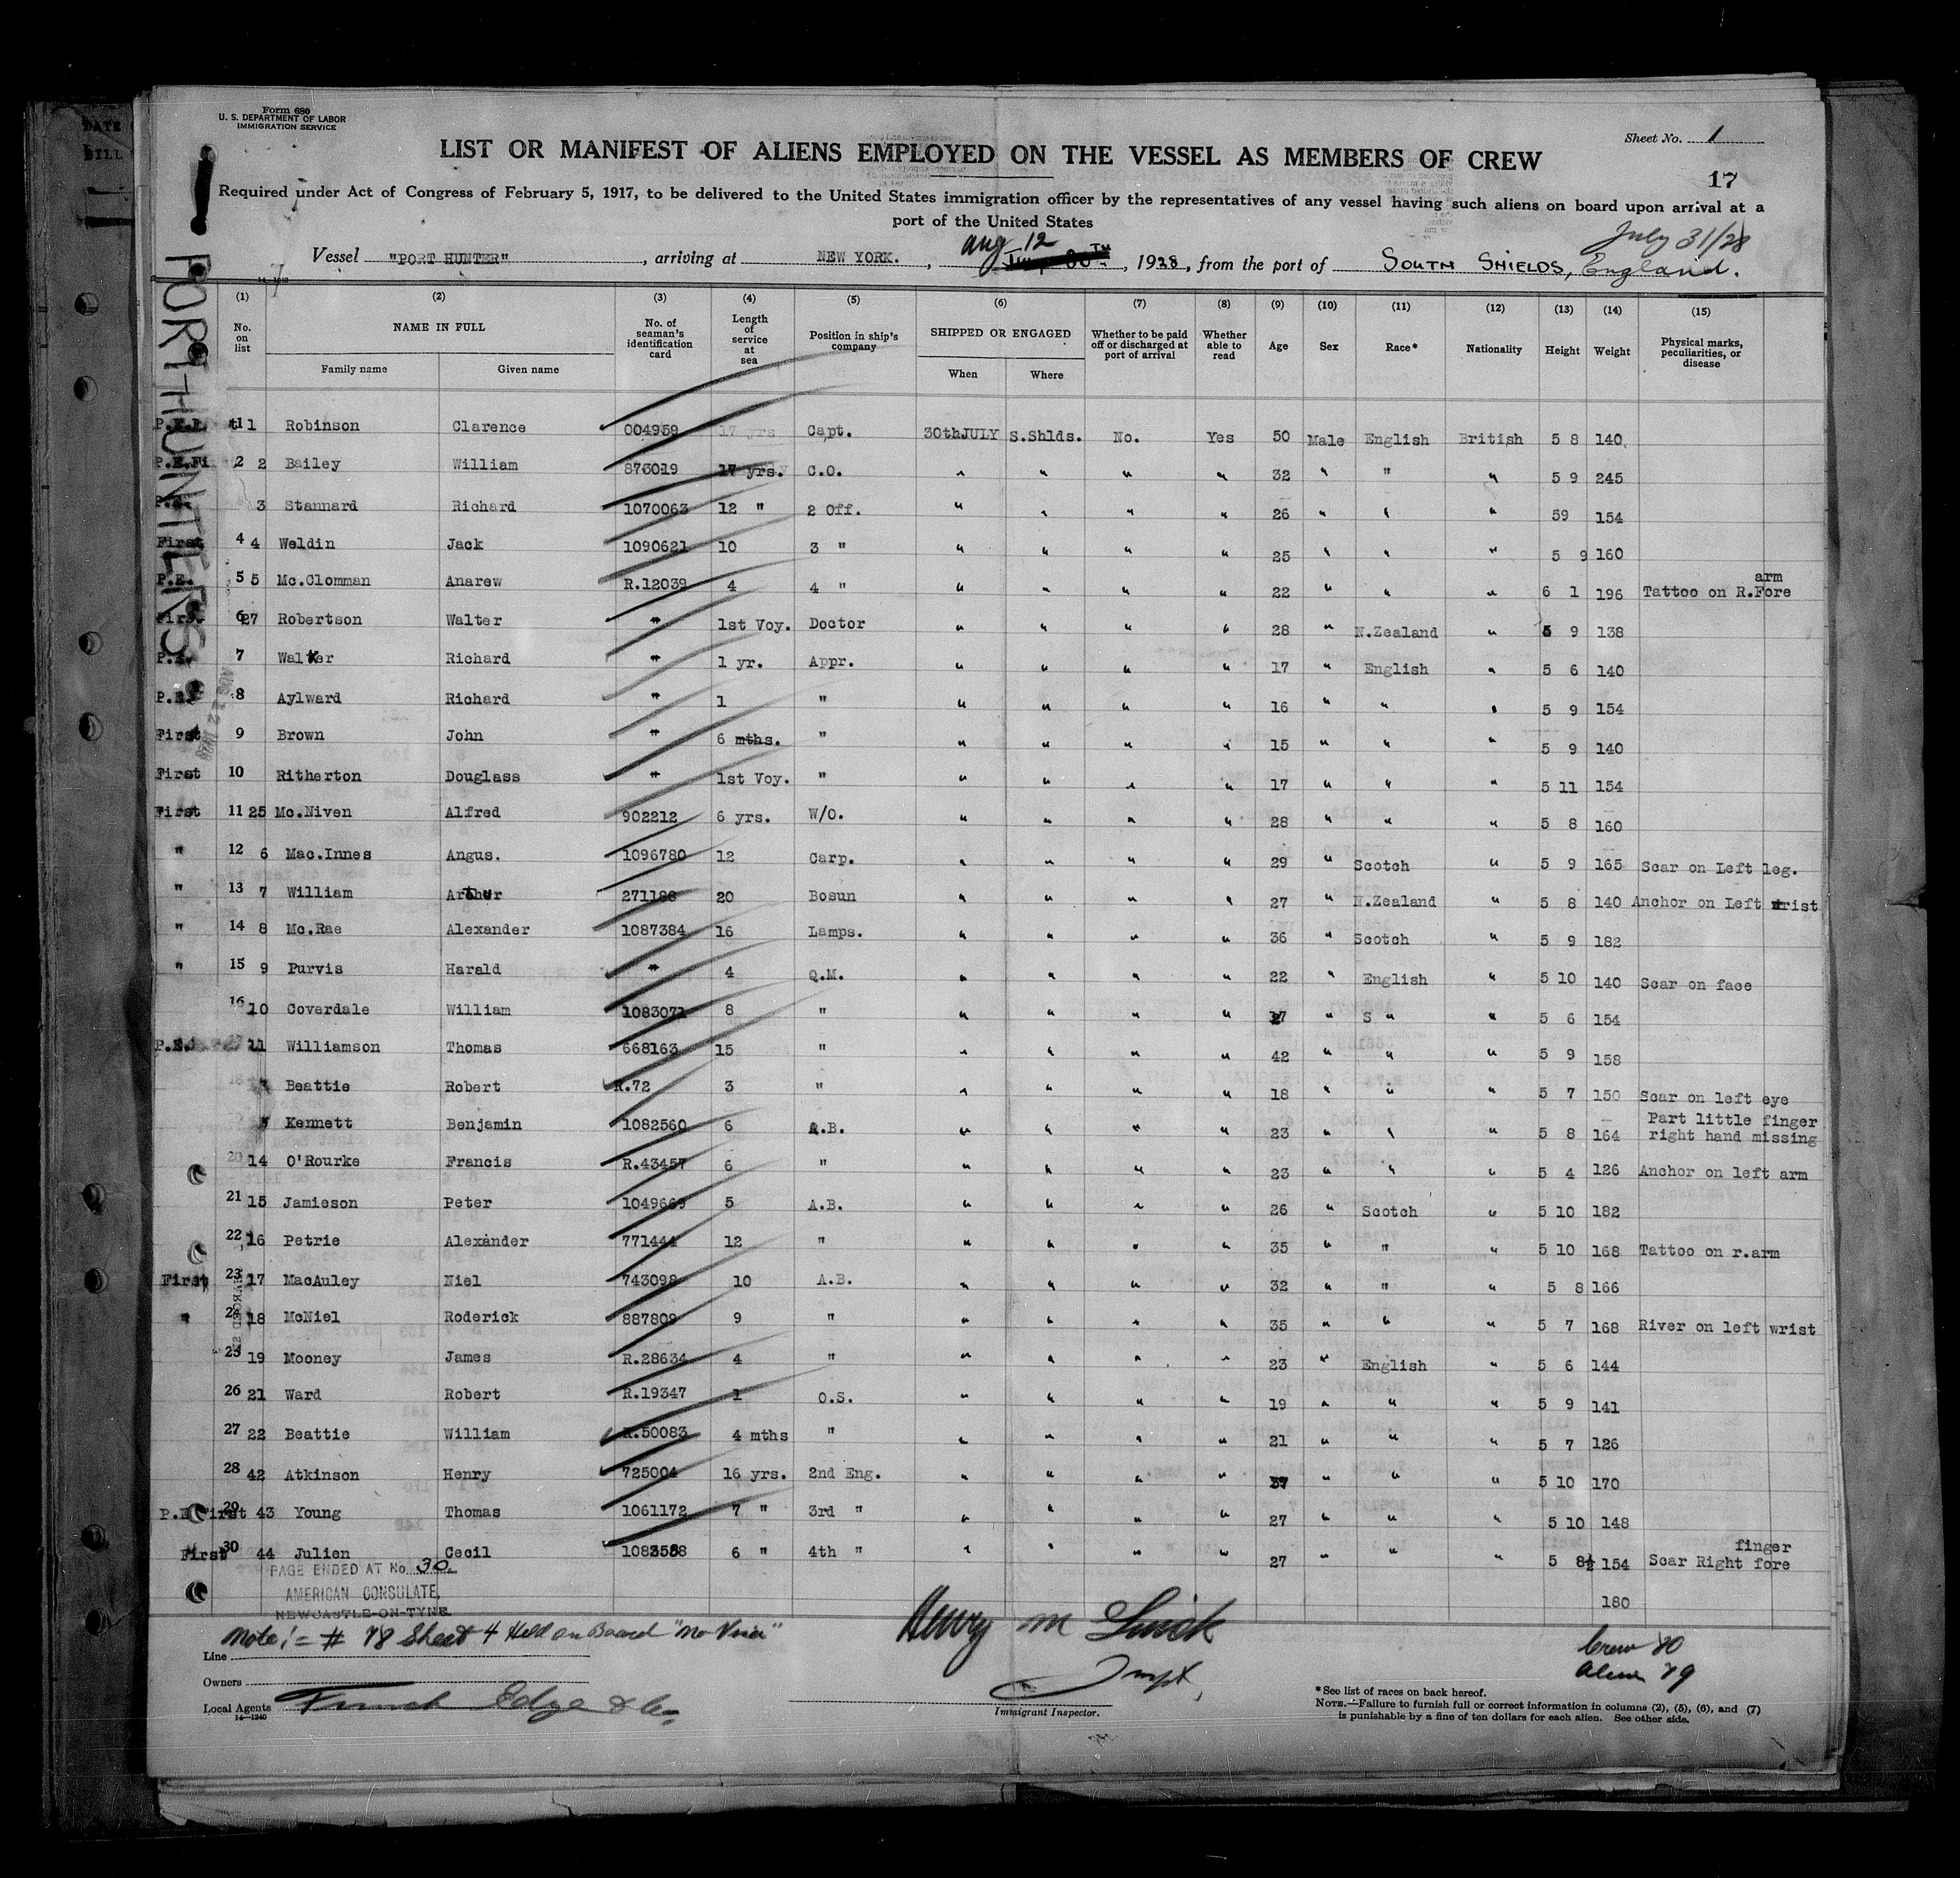 Form 680
U. S. DEPARTMENT OF LABOR
IMMIGRATION SERVICE
Sheet No. 1
LIST OR MANIFEST OF ALIENS EMPLOYED ON THE VESSEL AS MEMBERS OF CREW
17
Required under Act of Congress of February 5, 1917, to be delivered to the United States immigration officer by the representatives of any vessel having such aliens on board upon arrival at a
port of the United States
July 31/28
Aug 12
Vessel "PORT HUNTER", arriving at NEW YORK., 1928, from the port of SOUTH SHIELDS, England.
PORT HUNTER
(1) (2) (3) (4) (5) (6) (7) (8) (9) (10) (11) (12) (13) (14) (15)
No. on list NAME IN FULL Family name Given name No. of seaman's identification card Length of service at sea Position in ship's company SHIPPED OR ENGAGED When Where Whether to be paid off or discharged at port of arrival Whether able to read Age Sex Race* Nationality Height Weight Physical marks, peculiarities, or disease
1 Robinson Clarence 004959 17 yrs Capt. 30thJULY S.Shlds. No. Yes 50 Male English British 5 8 140
2 2 Bailey William 873019 17 yrs. C.O. " " " " 32 " " " 5 9 245
P.E. 3 Stannard Richard 1070063 12 " 2 Off. " " " " 26 " " " 59 154
First 4 4 Weldin Jack 1090621 10 3 " " " " " 25 " " " 5 9 160
P.E. 5 5 Mc.Clomman Anarew R.12039 4 4 " " " " " 22 " " " 6 1 196 Tattoo on R.Fore arm
First 6 27 Robertson Walter " 1st Voy. Doctor " " " " 28 " N.Zealand " 5 9 138
P.E. 7 Walker Richard " 1 yr. Appr. " " " " 17 " English " 5 6 140
P.E. 8 Aylward Richard " 1 " " " " " 16 " " " 5 9 154
First 9 Brown John " 6 mths. " " " " " 15 " " " 5 9 140
First 10 Ritherton Douglass " 1st Voy. " " " " " 17 " " " 5 11 154
First 11 25 Mc.Niven Alfred 902212 6 yrs. W/O. " " " " 28 " " " 5 8 160
" 12 6 Mac.Innes Angus. 1096780 12 Carp. " " " " 29 " Scotch " 5 9 165 Scar on Left leg.
" 13 7 William Arthur 271188 20 Bosun " " " " 27 " N.Zealand " 5 8 140 Anchor on Left wrist
" 14 8 Mc.Rae Alexander 1087384 16 Lamps. " " " " 36 " Scotch " 5 9 182
" 15 9 Purvis Harald " 4 Q.M. " " " " 22 " English " 5 10 140 Scar on face
16 10 Coverdale William 1083071 8 " " " " " " S " " 5 6 154
P.E. 11 Williamson Thomas 668163 15 " " " " " 42 " " " 5 9 158
Beattie Robert R.72 3 " " " " " 18 " " " 5 7 150 Scar on left eye
Kennett Benjamin 1082560 6 A.B. " " " " 23 " " " 5 8 164 Part little finger right hand missing
20 14 O'Rourke Francis R.43457 6 " " " " " 23 " " " 5 4 126 Anchor on left arm
21 15 Jamieson Peter 1049669 5 A.B. " " " " 26 " Scotch " 5 10 182
22 16 Petrie Alexander 771444 12 " " " " " 35 " " " 5 10 168 Tattoo on r.arm
First 23 17 MacAuley Niel 743098 10 A.B. " " " " 32 " " " 5 8 166
" 24 18 McNiel Roderick 887809 9 " " " " " 35 " " " 5 7 168 River on left wrist
25 19 Mooney James R.28634 4 " " " " " 23 " English " 5 6 144
26 21 Ward Robert R.19347 1 O.S. " " " " 19 " " " 5 9 141
27 22 Beattie William R.50083 4 mths " " " " " 21 " " " 5 7 126
28 42 Atkinson Henry 725004 16 yrs. 2nd Eng. " " " " " " " 5 10 170
P.E First 29 43 Young Thomas 1061172 7 " 3rd " " " " " 27 " " " 5 10 148
First 30 44 Julien Cecil 6 " 4th " " " " " 27 " " " 5 8½ 154 Scar Right fore finger
180
PAGE ENDED AT No. 30.
AMERICAN CONSULATE,
NEWCASTLE-ON-TYNE
Note:= # 78 Sheet 4 Held on Board "No Visa"
Henry M
Inspt,
Crew 80
Alien 79
Line
Owners
Local Agents
14—1240
Immigrant Inspector.
*See list of races on back hereof.
NOTE.—Failure to furnish full or correct information in columns (2), (5), (6), and (7)
is punishable by a fine of ten dollars for each alien. See other side.